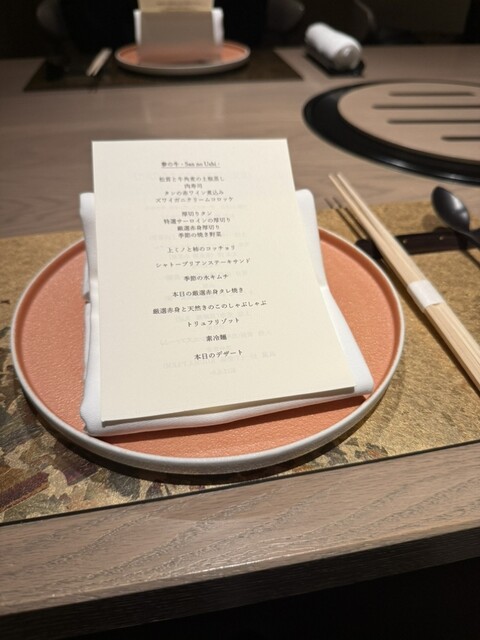 夢の牛 - Sau no Ushi -
松茸と牛角煮の土瓶蒸し
肉寿司
タンの赤ワイン煮込み
ズワイガニクリームコロッケ
厚切りタン
特選サーロインの厚切り
厳選赤身厚切り
季節の焼き野菜
上ミノと柿のコッチョリ
シャトーブリアンステーキサンド
季節の水キムチ
本日の厳選赤身タレ焼き
厳選赤身と天然きのこのしゃぶしゃぶ
トリュフリゾット
素冷麺
本日のデザート